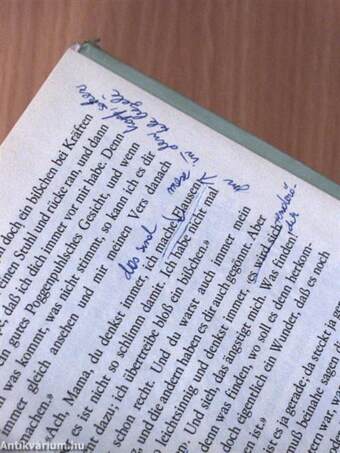 doch ein bißchen bei Kräften
einen Stuhl und rücke ran, und dann
daß ich dich immer vor mir habe. Denn
gutes Poggenpuhlsches Gesicht, und wenn
was kommt, was nicht stimmt, so kann ich es dir
immer gleich ansehen und mir meinen Vers danach
machen.«
»Ach, Mama, du denkst immer, ich mache Flausen.
es ist nicht so schlimm damit. Ich habe nicht mal
dazu, ich übertreibe bloß ein bißchen.«
schon recht. Und du warst auch immer mein
und die andern haben es dir auch gegönnt. Aber
leichtsinnig und denkst immer, es wird sich
Und sieh, das ängstigt mich. Was finden
finden, wo soll es denn herkom-
doch eigentlich ein Wunder, daß es noch
ist.«
ist es ja gerade; da steckt ja
muß beinahe sagen
war, war
das sind
Antikvarium.hu